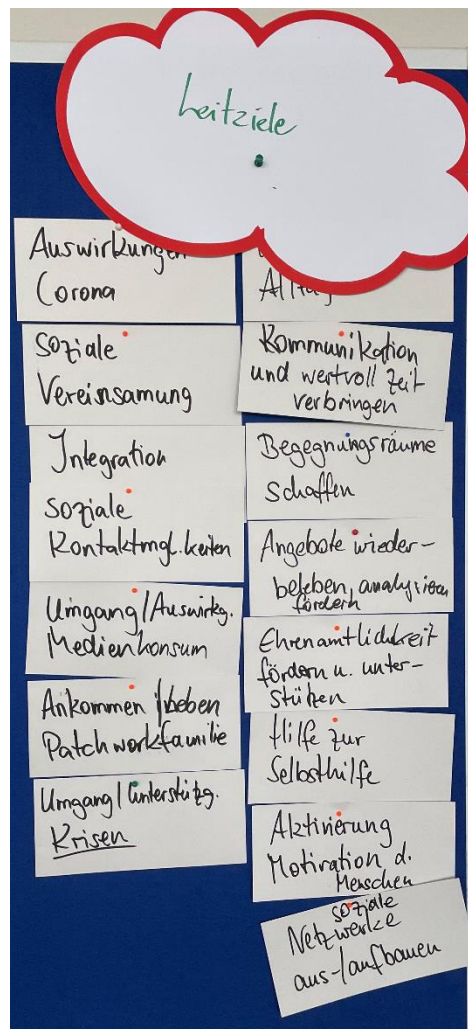 Leitziele
Auswirkungen
Corona
Soziale
Vereinsamung
Integration
Soziale
Kontaktmgl.keiten
Umgang/Auswirkg.
Medienkonsum
Ankommen/leben
Patchworkfamilie
Umgang/Unterstützg.
Krisen
Alltag
Kommunikation
und wertvoll Zeit
verbringen
Begegnungsräume
schaffen
Angebote wieder-
beleben, analysieren
fördern
Ehrenamtlichkeit
fördern u. unter-
stützen
Hilfe zur
Selbsthilfe
Aktivierung
Motivation d.
Menschen
soziale
Netzwerke
aus-/aufbauen